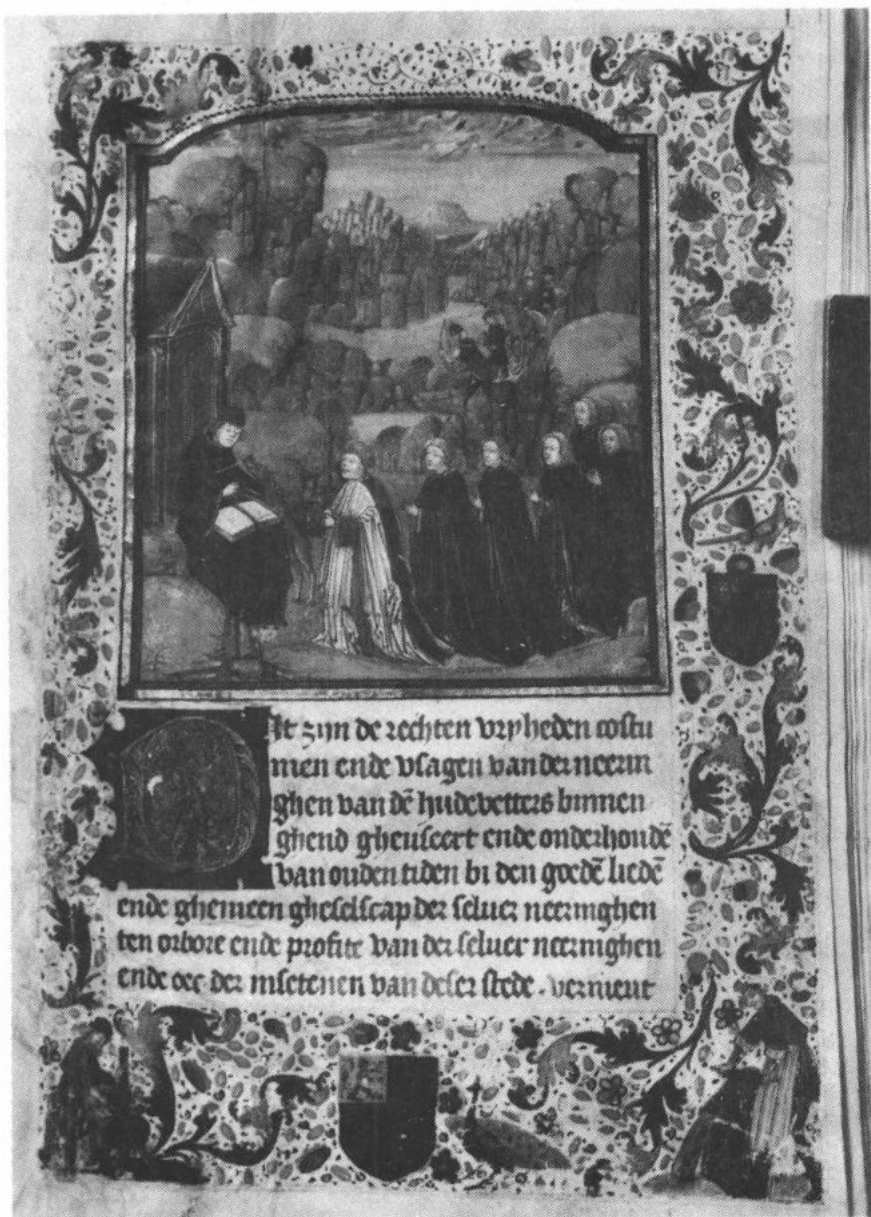 Dit zijn de rechten vryheden costu
men ende vsagen van der neerin
ghen van dē hudevetters binnen
ghend gheuseert ende onderhoudē
van ouden tiden bi den goedē liedē
ende ghemeen gheselscap der seluer neeringhen
ten orbore ende profite van der seluer neeringhen
ende oec der insetenen van deser stede . vernieut